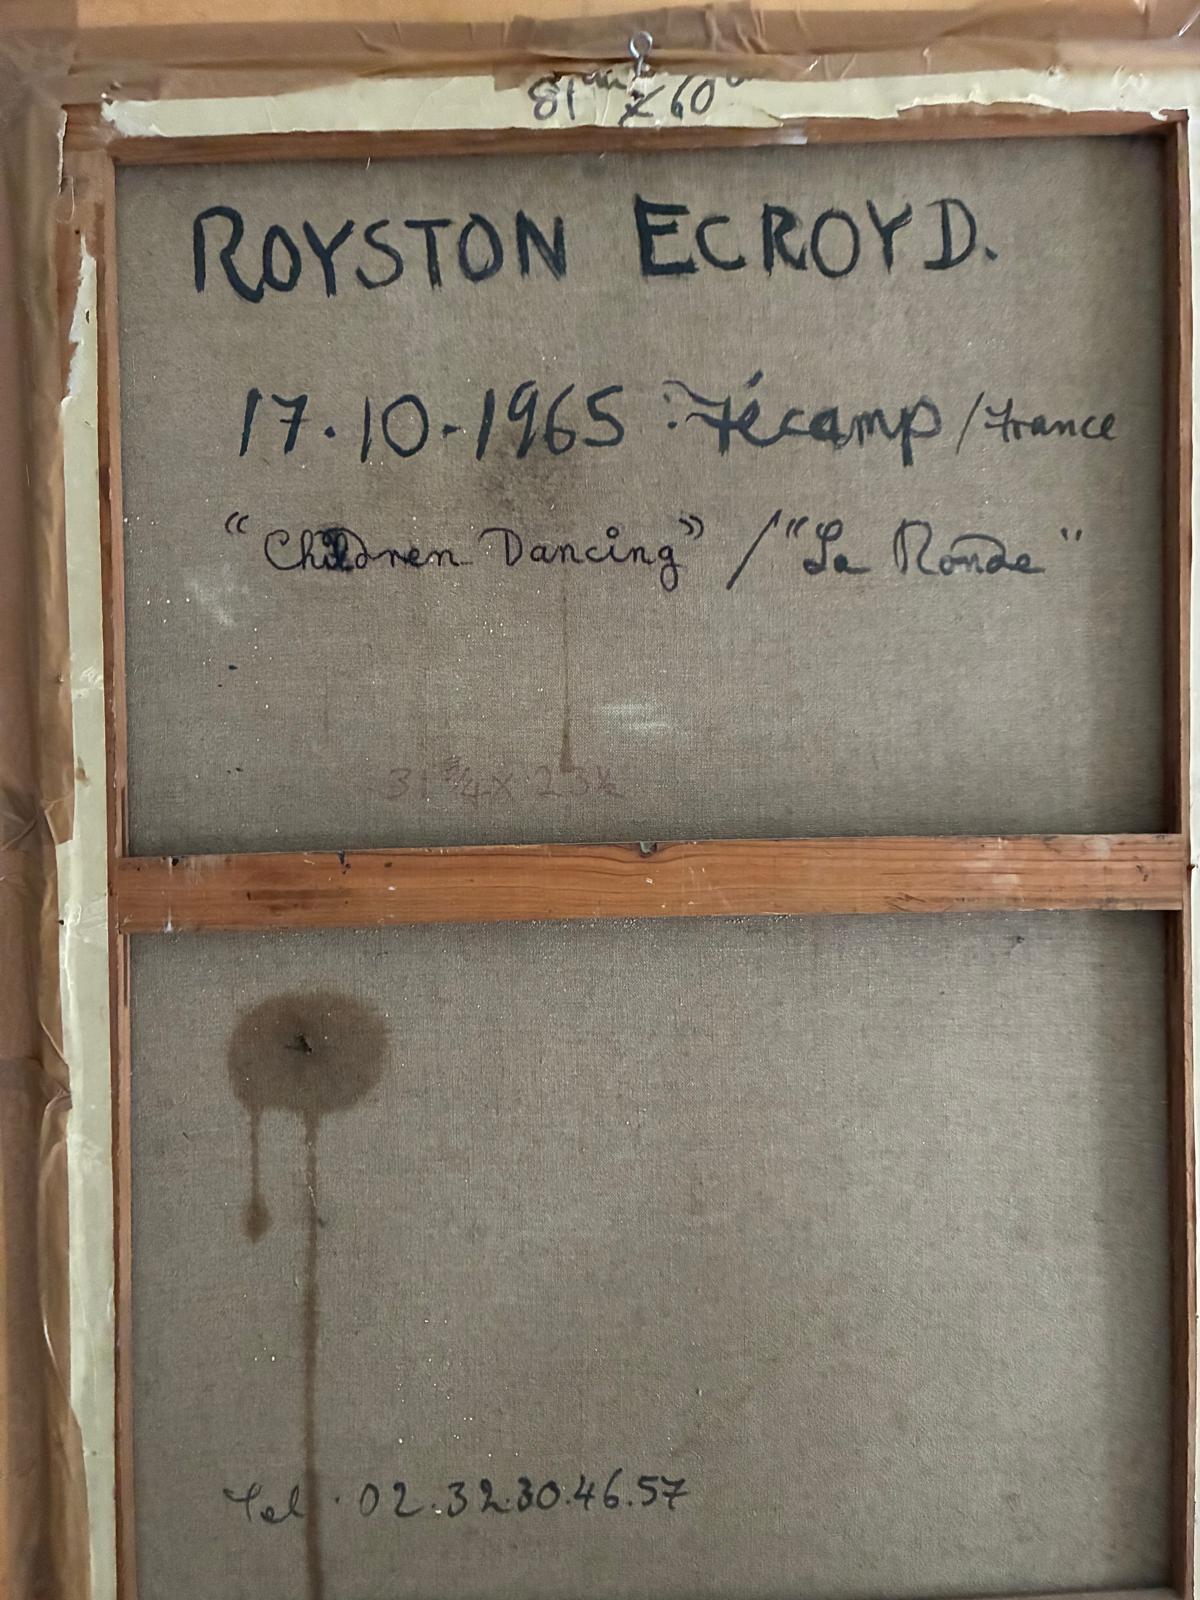 81 cm x 60 cm
ROYSTON ECROYD.
17.10-1965 : Fécamp / France
"Children Dancing" / "La Ronde"
31 3/4 x 23 1/2
Tel . 02.32.30.46.57